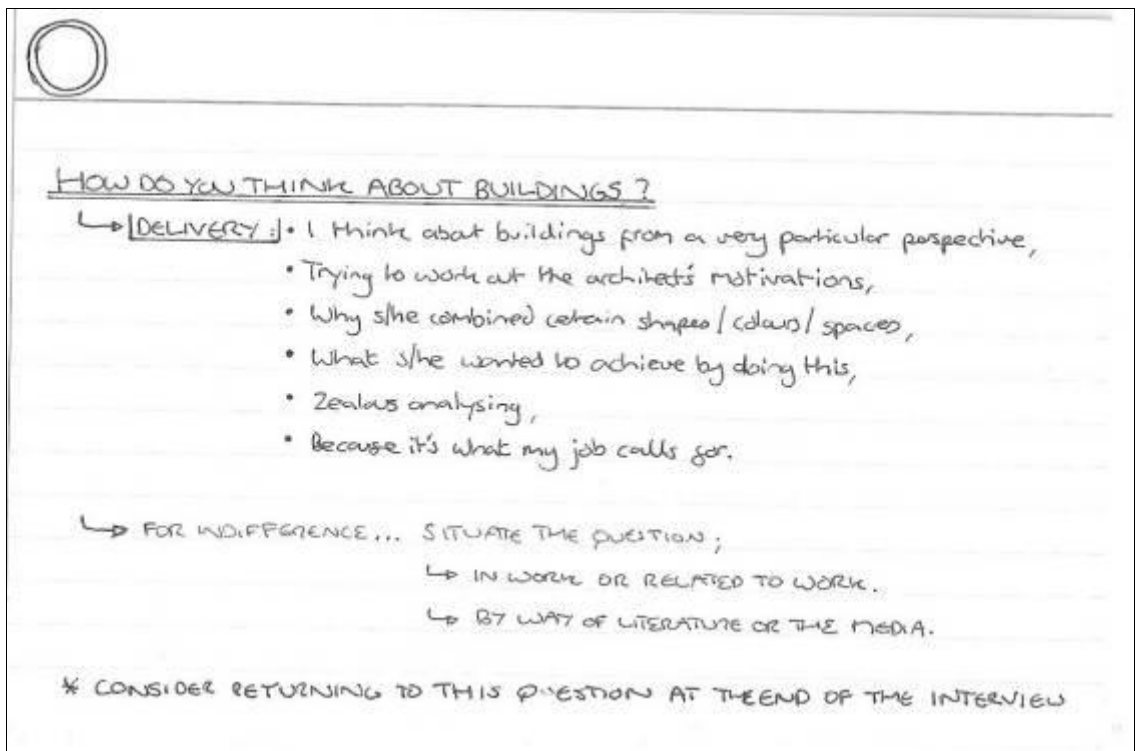 HOW DO YOU THINK ABOUT BUILDINGS?
↳ DELIVERY: • I think about buildings from a very particular perspective,
• Trying to work out the architect's motivations,
• Why s/he combined certain shapes/colours/spaces,
• What s/he wanted to achieve by doing this,
• Zealous analysing,
• Because it's what my job calls for.
↳ FOR INDIFFERENCE... SITUATE THE QUESTION;
↳ IN WORK OR RELATED TO WORK.
↳ BY WAY OF LITERATURE OR THE MEDIA.
* CONSIDER RETURNING TO THIS QUESTION AT THE END OF THE INTERVIEW